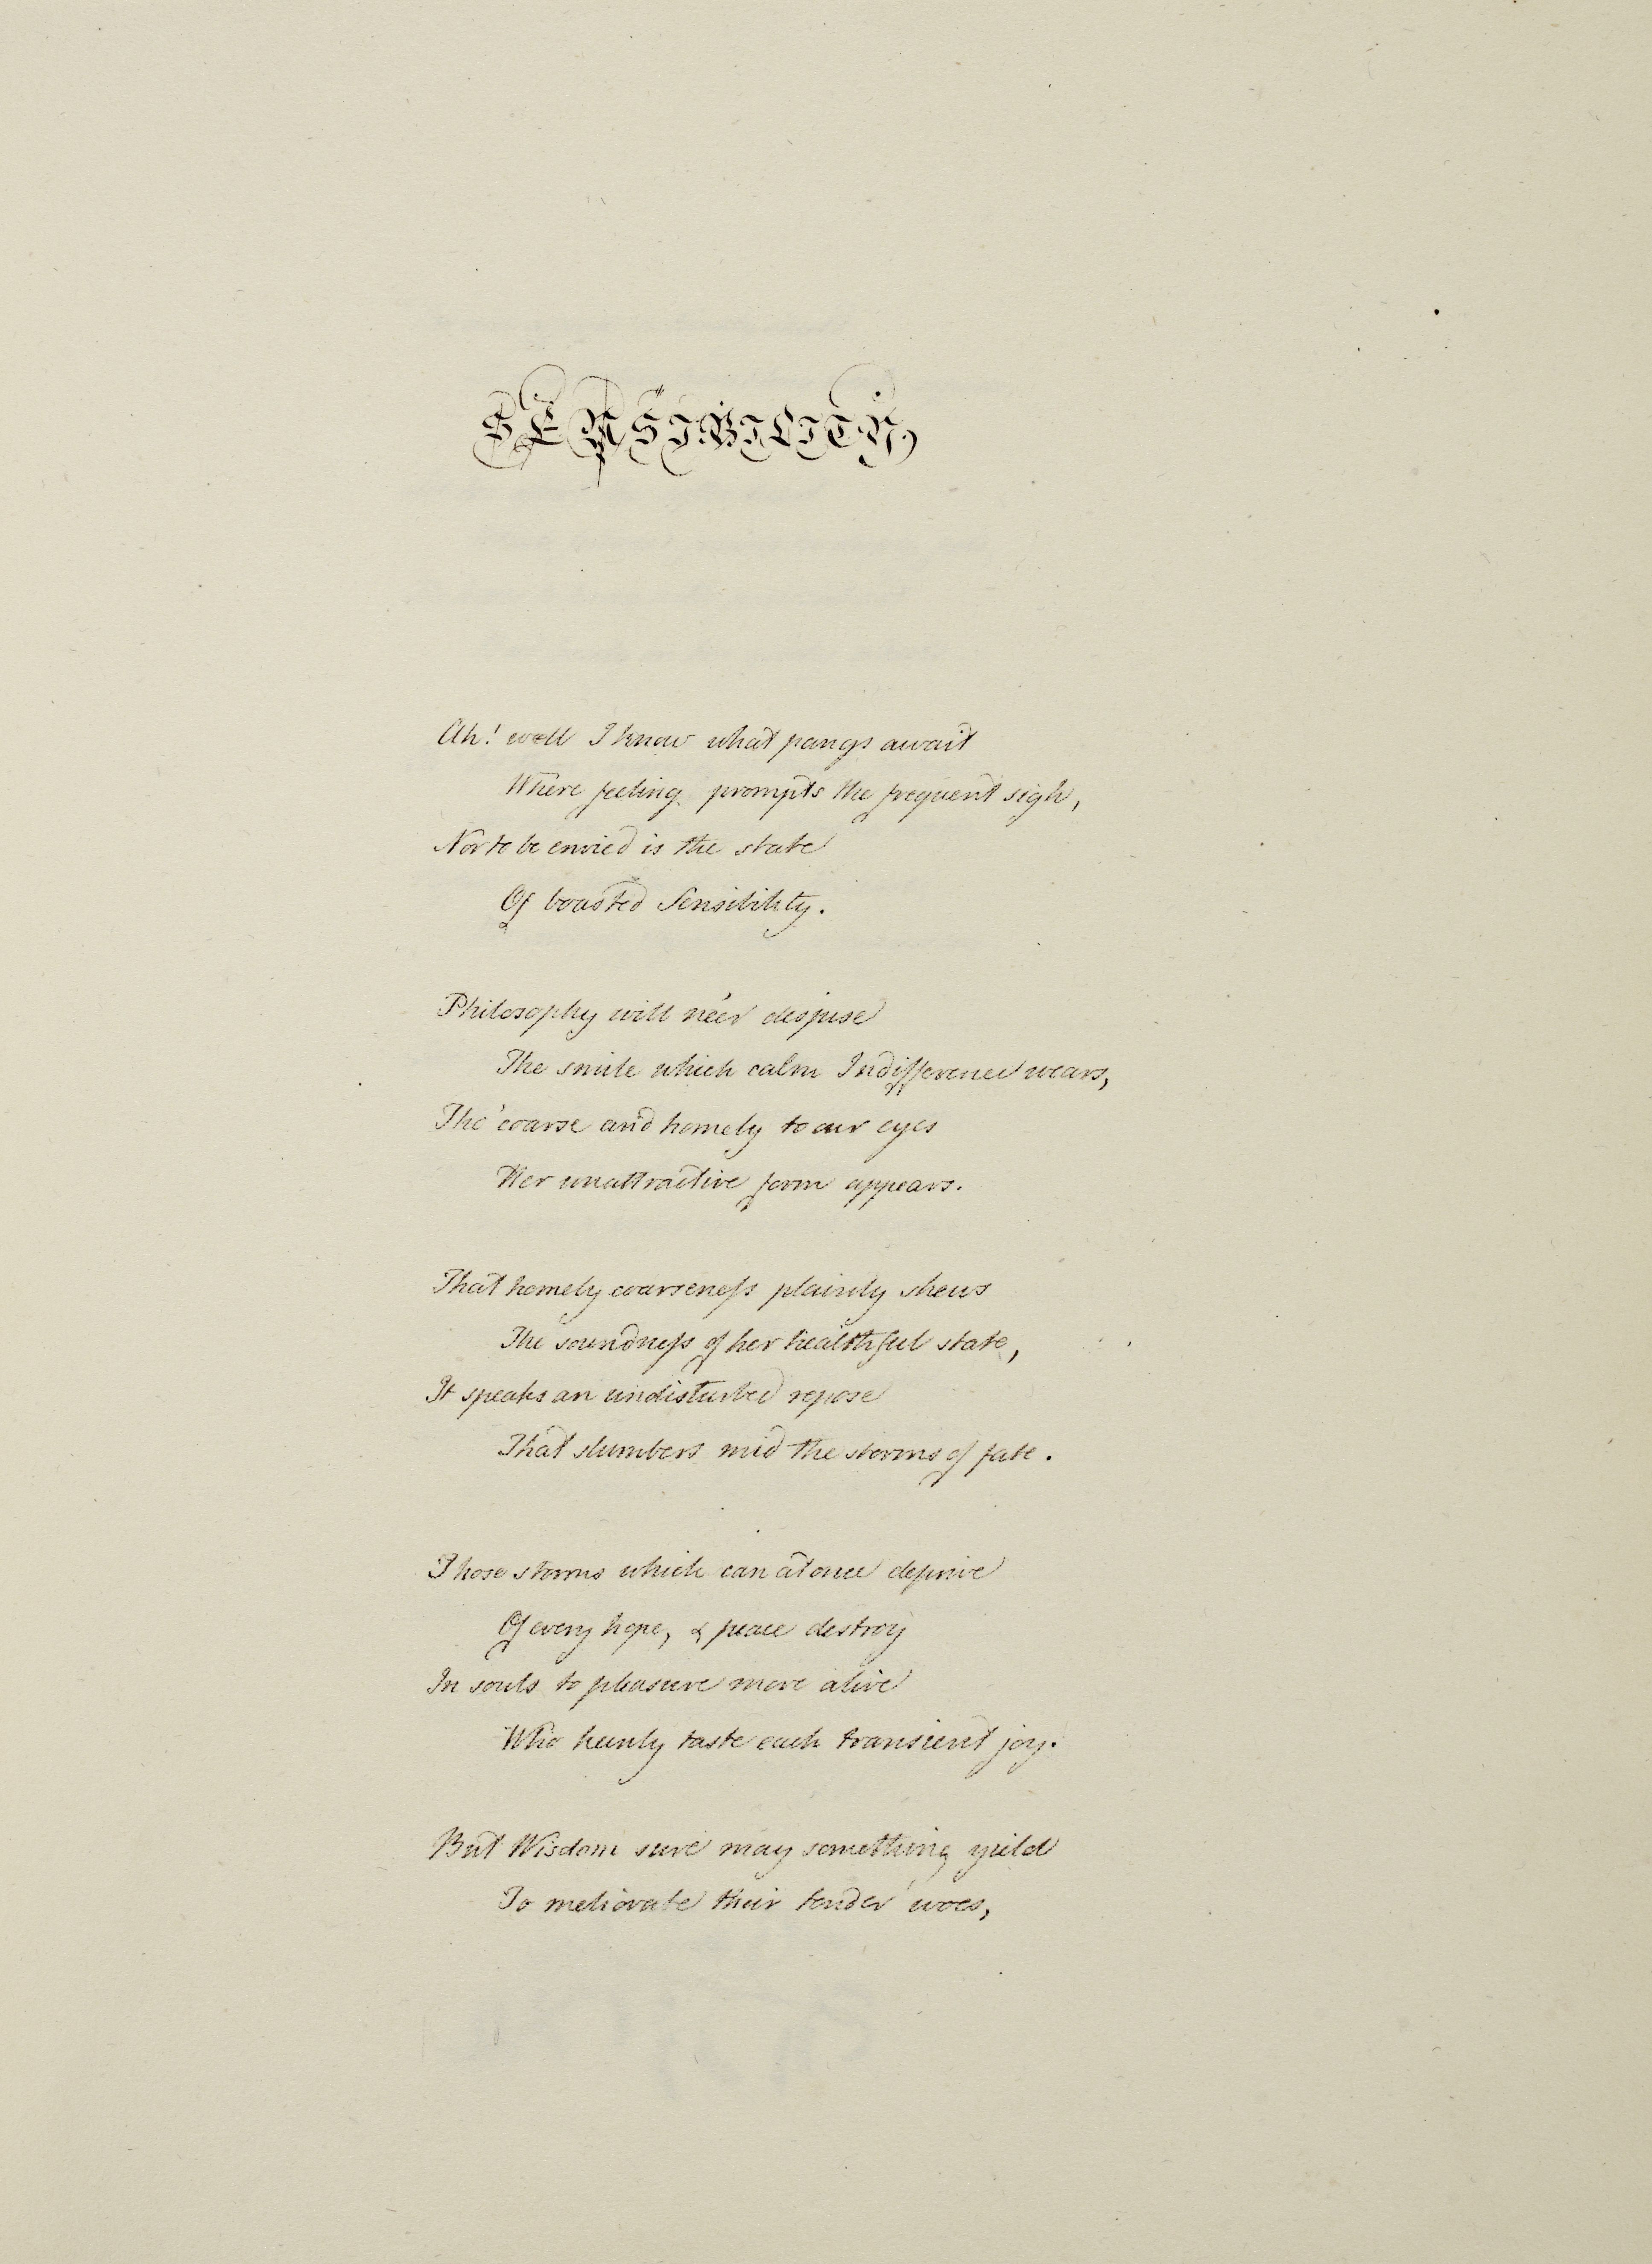 SENSIBILITY,
Ah! well I know what pangs await
Where feeling prompts the frequent sigh,
Nor to be envied is the state
Of boasted Sensibility.
Philosophy will ne'er despise
The smile which calm Indifference wears,
Tho' coarse and homely to our eyes
Her unattractive form appears.
That homely coarseneſs plainly shews
The soundneſs of her healthful state,
It speaks an undisturbed repose
That slumbers mid the storms of fate.
Those storms which can at once deprive
Of every hope, & peace destroy
In souls to pleasure more alive
Who keenly taste each transient joy.
But Wisdom sure may something yield
To meliorate their tender woes,